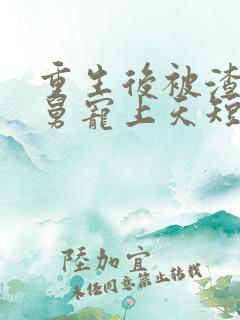 重生後被渣
舅寵上天短
陸加宜
未任同意禁止轉載